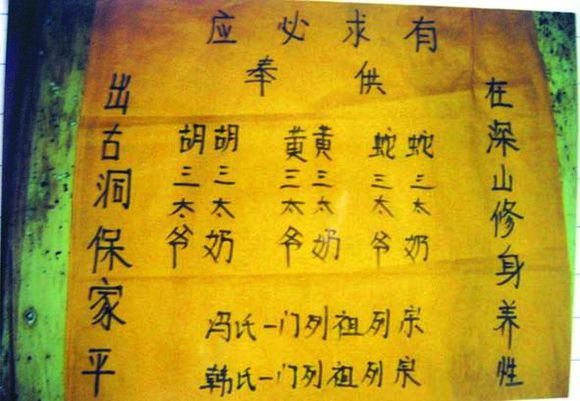 有求必应
供奉
在深山修身养性
蛇三太奶
蛇三太爷
黄三太奶
黄三太爷
胡三太奶
胡三太爷
冯氏一门列祖列宗
韩氏一门列祖列宗
出古洞保家平